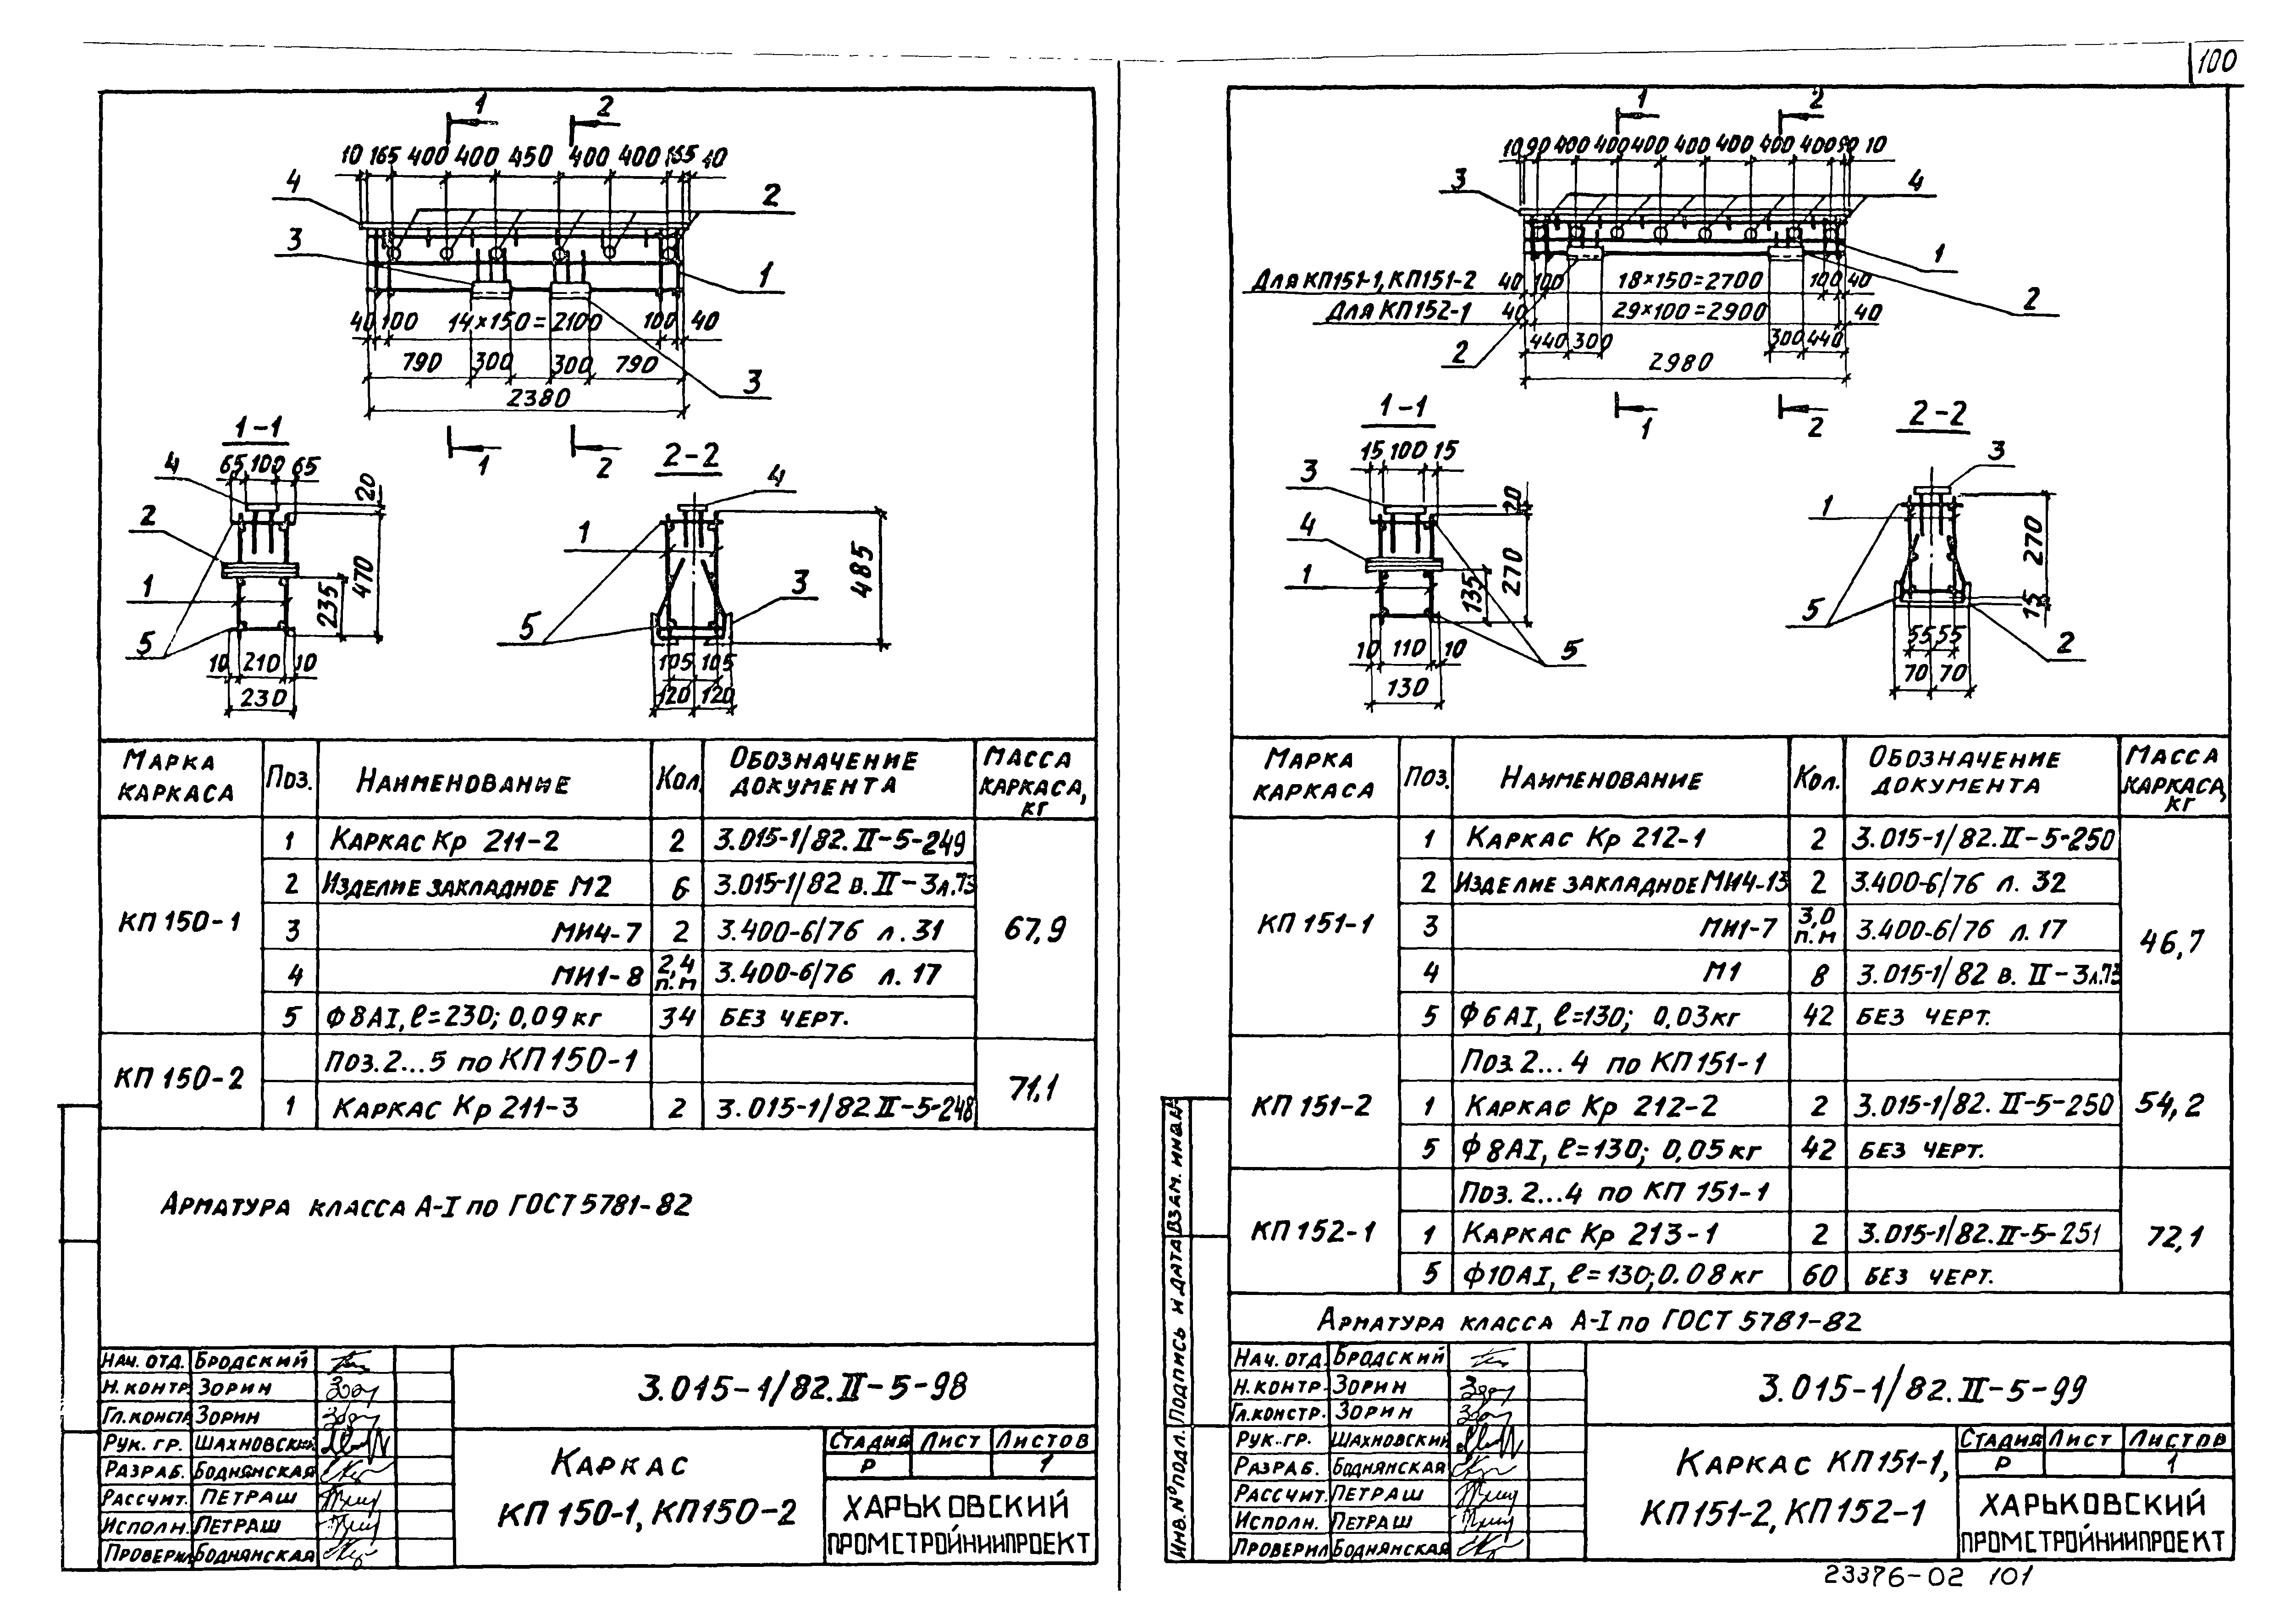 100
1 2
10 165 400 400 450 400 400 165 10
4 2
3 1
40 100 14×150=2100 100 40
790 300 300 790
3
2380
1 2
1-1
65 100 65
4
20
2
470
1
235
5
10 210 10
230
2-2
4
1
485
3
5
105 105
120 120
МАРКА КАРКАСА ПОЗ. НАИМЕНОВАНИЕ КОЛ. ОБОЗНАЧЕНИЕ ДОКУМЕНТА МАССА КАРКАСА, КГ
КП 150-1 67,9
1 КАРКАС Кр 211-2 2 3.015-1/82.II-5-249
2 ИЗДЕЛИЕ ЗАКЛАДНОЕ М2 6 3.015-1/82 В. II-3л.73
3 МИ4-7 2 3.400-6/76 Л. 31
4 МИ1-8 2,4 п.м 3.400-6/76 Л. 17
5 Ф8АI, ℓ=230; 0,09кг 34 БЕЗ ЧЕРТ.
КП 150-2 71,1
ПОЗ. 2...5 по КП150-1
1 КАРКАС Кр 211-3 2 3.015-1/82 II-5-248
АРМАТУРА КЛАССА А-I по ГОСТ 5781-82
НАЧ. ОТД. БРОДСКИЙ
Н. КОНТР. ЗОРИН
ГЛ.КОНСТР. ЗОРИН
РУК. ГР. ШАХНОВСКИЙ
РАЗРАБ. БОДНЯНСКАЯ
РАССЧИТ. ПЕТРАШ
ИСПОЛН. ПЕТРАШ
ПРОВЕРИЛ БОДНЯНСКАЯ
3.015-1/82.II-5-98
КАРКАС
КП 150-1, КП150-2
СТАДИЯ ЛИСТ ЛИСТОВ
Р 1
ХАРЬКОВСКИЙ
ПРОМСТРОЙНИИПРОЕКТ
1 2
10 90 400 400 400 400 400 400 400 90 10
3 4
1
ДЛЯ КП151-1, КП151-2 40 100 18×150=2700 100 40
2
ДЛЯ КП152-1 40 29×100=2900 40
440 300 300 440
2
2980
1 2
1-1
15 100 15
3
20
4
270
1
135
10 110 10
5
130
2-2
3
1
270
15
5
55 55
2
70 70
МАРКА КАРКАСА ПОЗ. НАИМЕНОВАНИЕ КОЛ. ОБОЗНАЧЕНИЕ ДОКУМЕНТА МАССА КАРКАСА, КГ
КП 151-1 46,7
1 КАРКАС Кр 212-1 2 3.015-1/82.II-5-250
2 ИЗДЕЛИЕ ЗАКЛАДНОЕ МИ4-13 2 3.400-6/76 Л. 32
3 МИ1-7 3,0 п.м 3.400-6/76 Л. 17
4 М1 8 3.015-1/82 В. II-3л.73
5 Ф6АI, ℓ=130; 0.03кг 42 БЕЗ ЧЕРТ.
КП 151-2 54,2
ПОЗ. 2...4 по КП 151-1
1 КАРКАС Кр 212-2 2 3.015-1/82. II-5-250
5 Ф8АI, ℓ=130; 0,05кг 42 БЕЗ ЧЕРТ.
КП 152-1 72,1
ПОЗ. 2...4 по КП 151-1
1 КАРКАС Кр 213-1 2 3.015-1/82.II-5-251
5 Ф10АI, ℓ=130; 0.08кг 60 БЕЗ ЧЕРТ.
АРМАТУРА КЛАССА А-I по ГОСТ 5781-82
ИНВ.№ПОДЛ. ПОДПИСЬ И ДАТА ВЗАМ. ИНВ.№
НАЧ. ОТД. БРОДСКИЙ
Н.КОНТР. ЗОРИН
ГЛ.КОНСТР. ЗОРИН
РУК. ГР. ШАХНОВСКИЙ
РАЗРАБ. БОДНЯНСКАЯ
РАССЧИТ. ПЕТРАШ
ИСПОЛН. ПЕТРАШ
ПРОВЕРИЛ БОДНЯНСКАЯ
3.015-1/82.II-5-99
КАРКАС КП151-1,
КП151-2, КП152-1
СТАДИЯ ЛИСТ ЛИСТОВ
Р 1
ХАРЬКОВСКИЙ
ПРОМСТРОЙНИИПРОЕКТ
23376-02 101